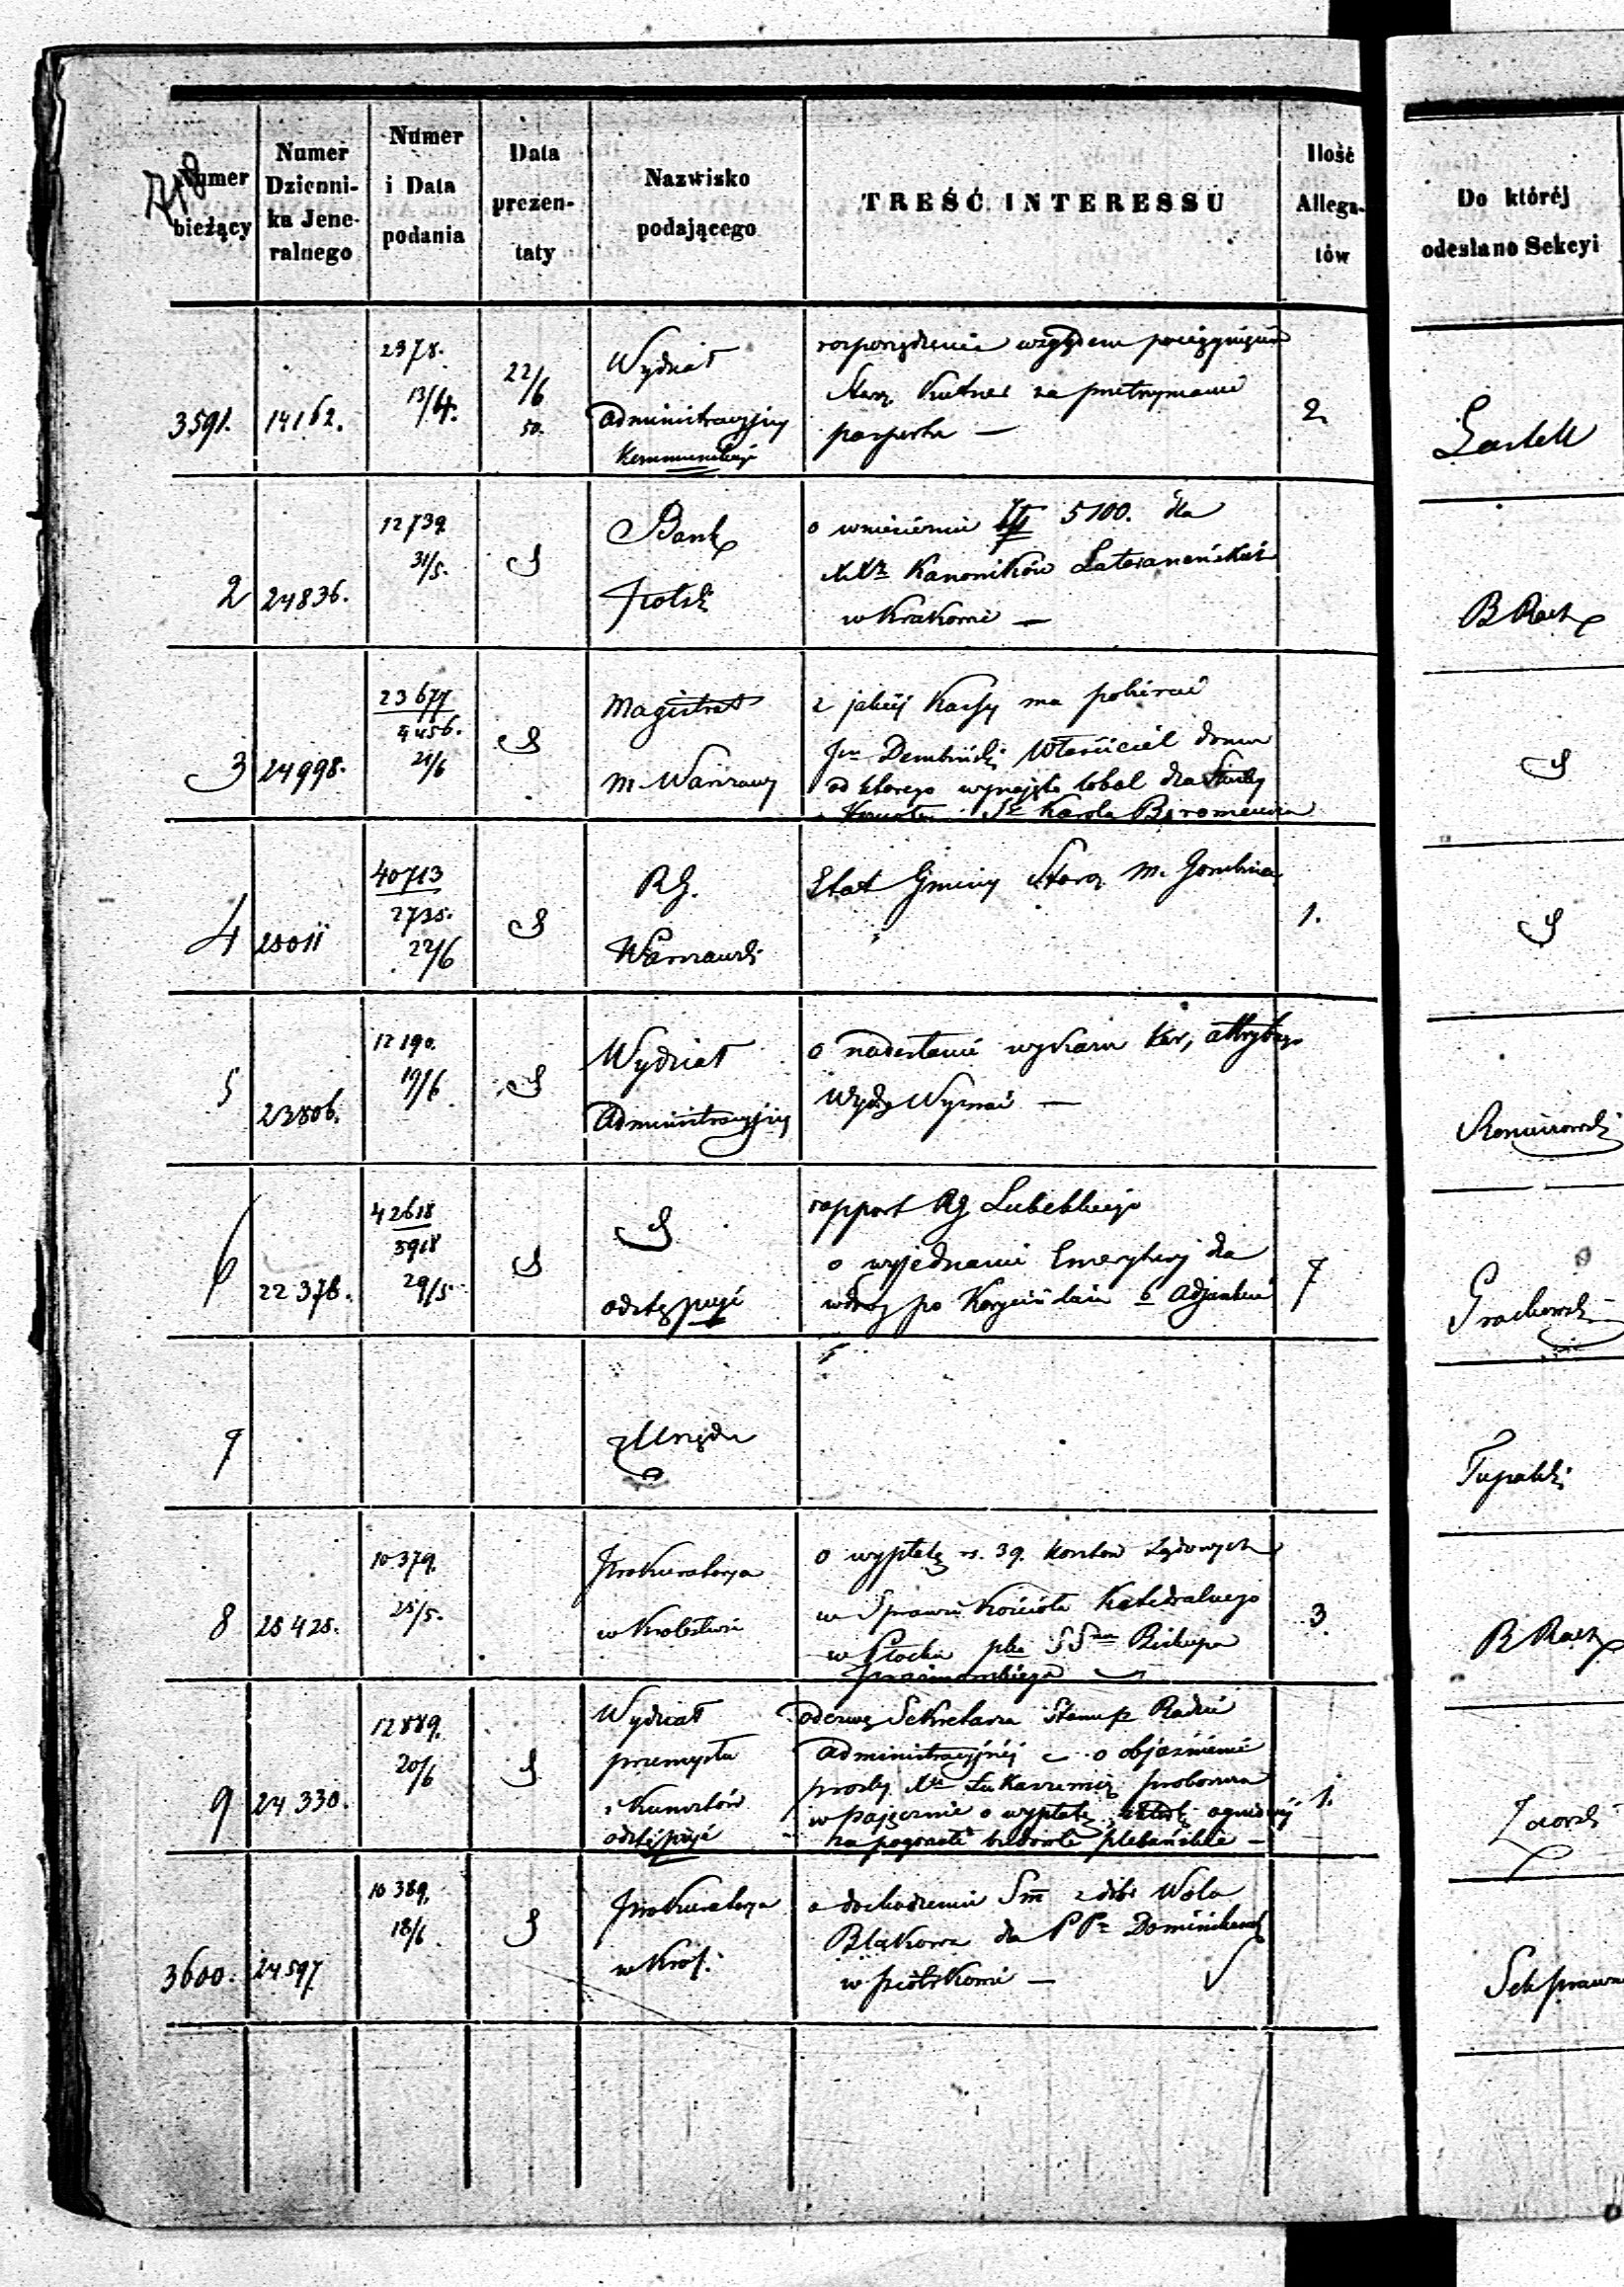 Numer bieżący
Numer Dzienni-ka Jene-ralnego
Numer i Data podania
Data prezen-taty
Nazwisko podającego
TREŚĆ INTERESSU
Ilość Allega-tów
Do któréj odesłano Sekcyi
3591.
14162.
2378.
13/4.
22/6
50.
Wydział
Administracyjny
rozporządzenie względem
Star. Kutner za przetrzymanie
paszportu —
2
2
24836.
12739
31/5.
Bank
Polski
o wniesienie 5100. dla
XXx Kanoników Laterańskich
w Krakowie —
3
24998.
23677
9456.
21/6
Magistrat
m. Warszawy
z jakiéj Kassy ma pobierać
Jan Dembiński Właściciel domu
od ktorego wynajęto lokal dla Sług
Kościoła Sgo Karola Boromeusza
4
25011
40713
2735.
22/6
RG.
Warszawski
Etat Gminy Staroz. m. Gombina
1.
5
23806.
12190.
19/6
Wydział
Administracyjny
o nadesłanie wykazu
Wydz. Wyznań —
6
22376.
42618
5918
29/5.
odstępuje
rapport RG Lubelskiego
o wyjednanie Emerytury dla
wdowy po b Adjunkcie
7
7
z Urzędu
8
25425.
10379.
25/5.
Prokuratorya
w Królestwie
o wypłatę rs. 39. kosztów Sądowych
w Sprawie Kościoła Katedralnego
w Płocku pko SSom Biskupa
Prażmowskiego
3
B Rach
9
24330.
12889.
20/6
Wydział
przemysłu
i Kunsztów
odstępuje
odezwę Sekretarza Stanu p. Radzie
Administracyjnéj o objaśnienie
prośby Xa Łukaszewicz proboszcza
w Pajęcznie o wypłatę ogniowéj
za pogorzałe budowle plebańskie —
1.
3600.
24597
10389.
18/6
Prokuratorya
w Król.
o dochodzenie Sm z dóbr Wola
Blakowa dla PPn Dominikanek
w Piotrkowie —
Sek prawna